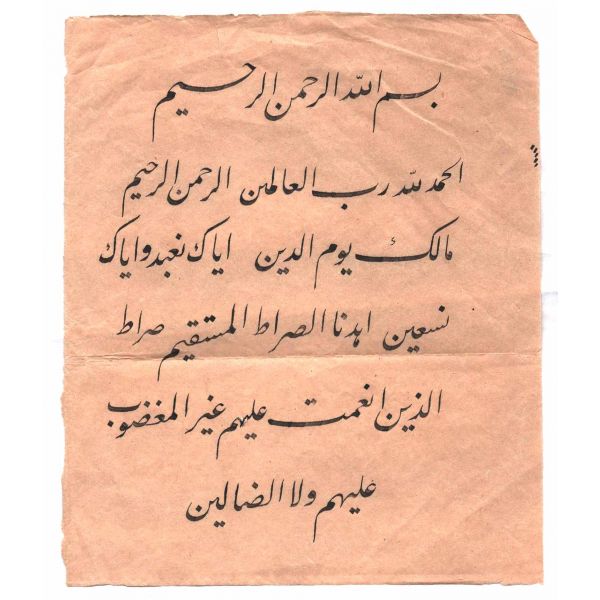 بسم الله الرحمن الرحيم
الحمد لله رب العالمين الرحمن الرحيم
مالك يوم الدين اياك نعبد واياك
نسعين اهدنا الصراط المستقيم صراط
الذين انعمت عليهم غير المغضوب
عليهم ولا الضالين